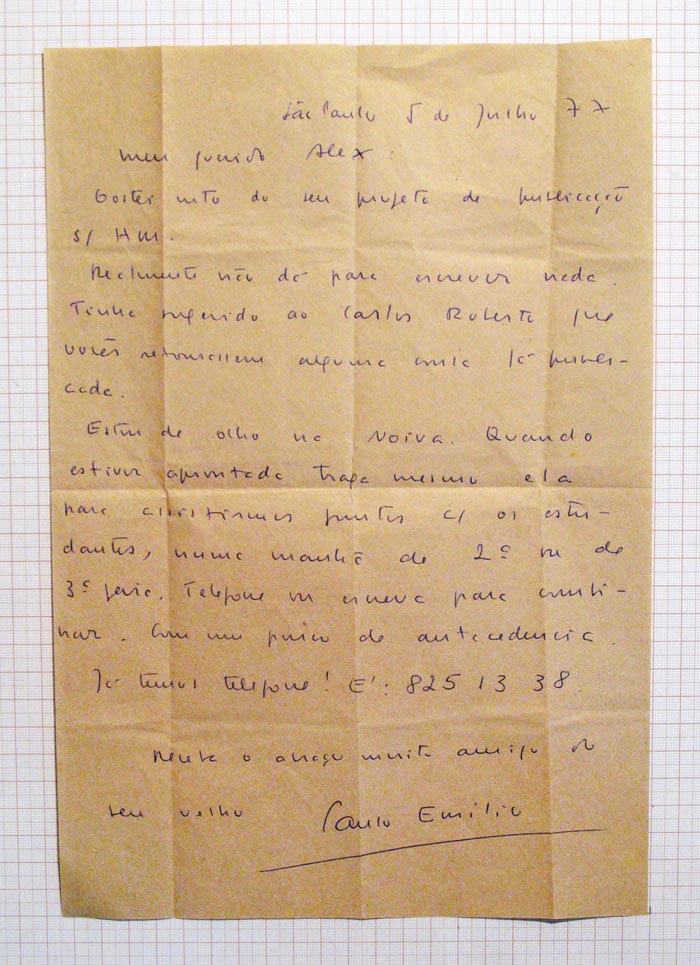 São Paulo 5 de Julho 77
Meu querido Alex.
Gostei mto do seu projeto de publicação
s/ HM.
Realmente não dá para escrever nada.
Tinha sugerido ao Carlos Roberto que
vocês retomassem alguma coisa já publi-
cada.
Estou de olho na Noiva. Quando
estiver aprontada traga mesmo ela
para assistirmos juntos c/ os estu-
dantes, numa manhã de 2ª ou de
3ª feira. Telefone ou escreva para combi-
nar. Com um pouco de antecedencia.
Já temos telefone! E': 825 13 38.
Receba o abraço muito amigo do
seu velho Paulo Emilio